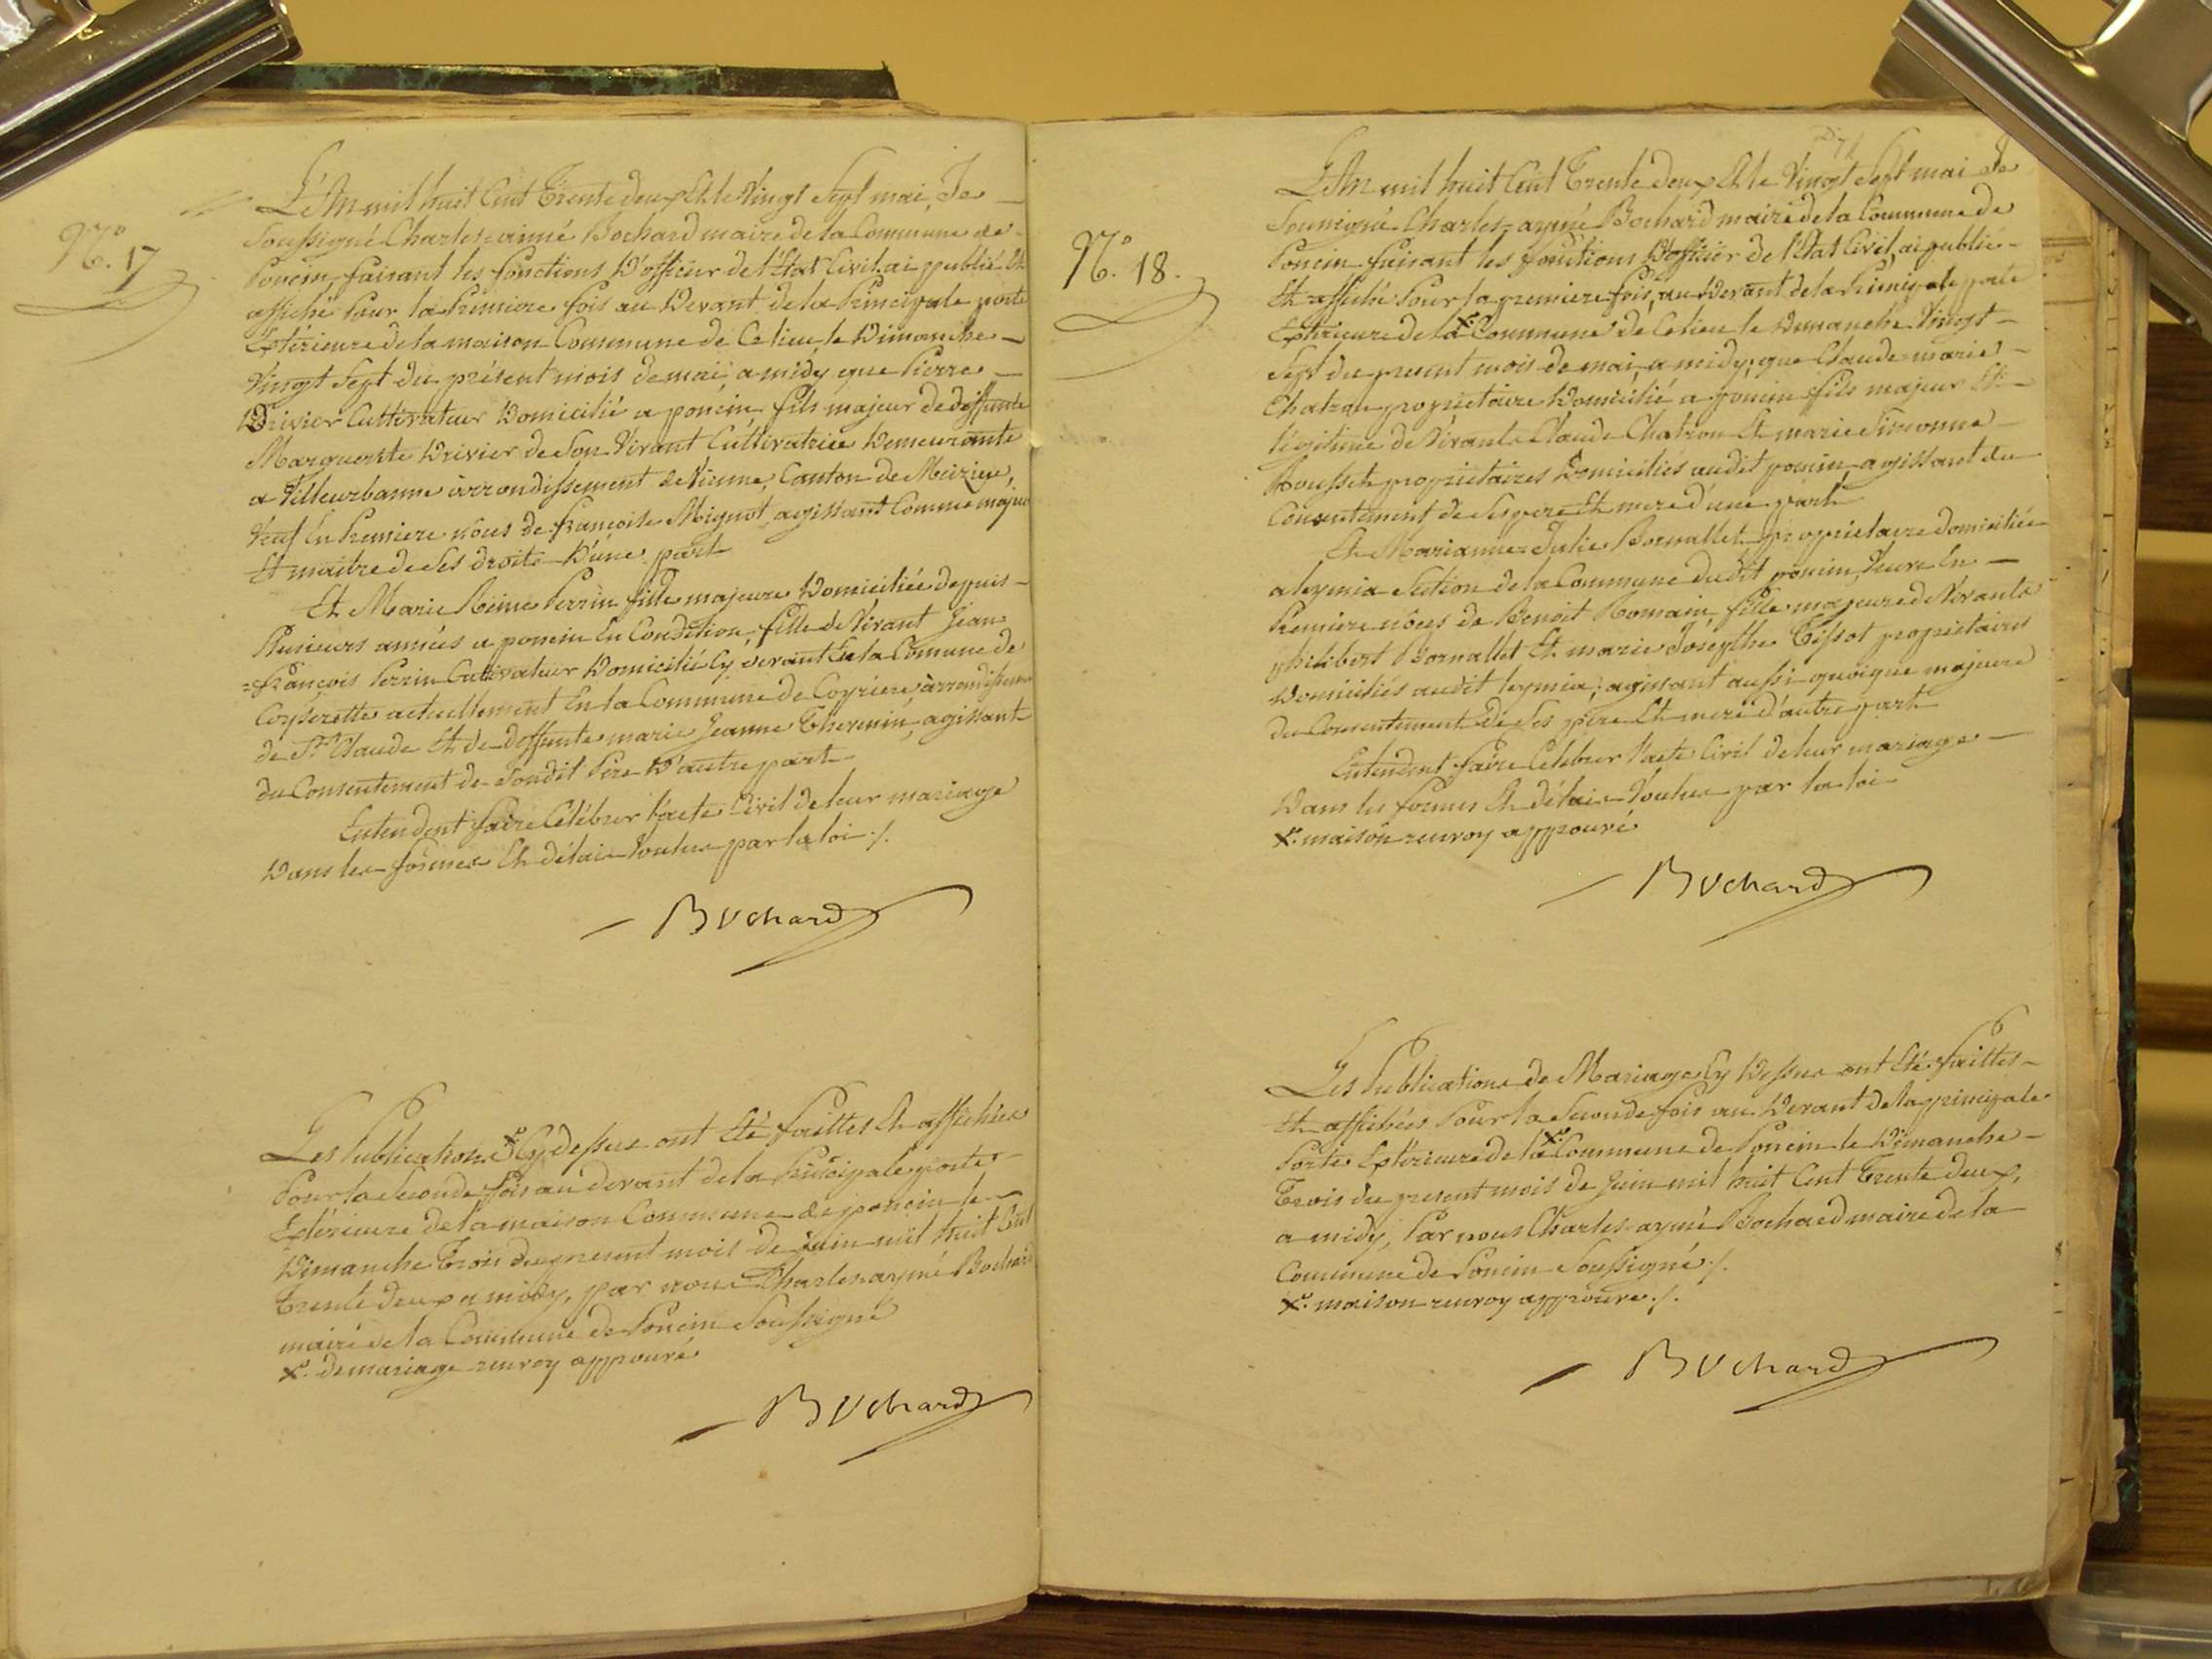 N.º 17
L'An mil huit Cent Trente deux Et le Vingt Sept mai, Je
Soussigné Charles=aimé Bochard maire de la Commune de
Poncin, faisant les fonctions D'officier de l'Etat Civil ai publié Et
affiché Pour la Premiere fois au Devant de la Principale porte
Extérieure de la maison Commune de Ce lieu, le Dimanche
Vingt Sept du présent mois de mai, a midy que Pierre
Drivier Cultivateur Domicilié a poncin fils majeur de deffunte
Marguerite Drivier de Son Vivant Cultivatrice Demeurante
a Villeurbanne arrondissement de Vienne, Canton de Meizieu,
Veuf En Premiere nôces de françoise Mignot, agissant Comme majeur
Et maitre de Ses droits D'une part
Et Marie Reine Perrin fille majeure Domiciliée depuis
Plusieurs années a poncin En Condition, fille de Vivant Jean
=françois Perrin Cultivateur Domicilié Cy devant En la Comune de
Coyserette actuellement En la Commune de Coyriere, arrondissement
de St. Claude Et de deffunte marie Jeanne Thevenin, agissante
du Consentement de Soudit Père D'autre part
Entendent faire Célébrer l'acte Civil de leur mariage
Dans les formes Et délais Voulus par la loi ./.
Bochard
Les Publications x Cy dessus ont Eté faittes Et affichées
Pour la Seconde fois au devant de la Principale porte
Extérieure de la maison Commune de poncin le
Dimanche Trois du present mois de juin mil huit Cent
Trente deux a midy, par nous Charles aymé Bochard
maire de la Commune de Poncin Soussigné
x. de mariage renvoy approuvé
Bochard
N.º 18.
L'An mil huit Cent Trente deux Et le Vingt Sept mai Je
Soussigné Charles=aymé Bochard maire de la Commune de
Poncin faisant les fonctions D'officier de l'Etat Civil, ai publié
Et affiché Pour la premiere fois, au Devant de la Principale porte
Extérieure de la x Commune de Ce lieu le Dimanche Vingt
Sept du present mois de mai, a midy, que Claude=marie
Chatron propriétaire Domicilié a poncin fils majeur Et
légitime de Vivants Claude Chatron Et marie Simonne
Rousset propriétaires Domiciliés audit poncin agissant du
Consentement de Ses pere Et mere d'une part
Et Marianne=Julie Bornallet propriétaire Domiciliée
a leymia Section de la Commune dudit poncin, Veuve En
Premiere nôces de Benoit Romain, fille majeure de Vivants
philibert Bornallet Et marie Josephte Tissot propriétaires
Domiciliés audit leymia; agissant aussi quoique majeure
du Consentement de Ses père Et mere d'autre part
Entendent faire Célébrer l'acte Civil de leur mariage
Dans les formes Et délais Voulus par la loi
x. maison renvoy approuvé
Bochard
Les Publications de Mariage Cy Dessus ont Eté faittes
Et affichées Pour la Seconde fois au Devant de la principale
Porte Extérieure de la x Commune de Poncin le Dimanche
Trois du present mois de Juin mil huit Cent Trente deux,
a midy, Par nous Charles aymé Bochard maire de la
Commune de Poncin Soussigné ./.
x. maison renvoy approuvé ./.
Bochard